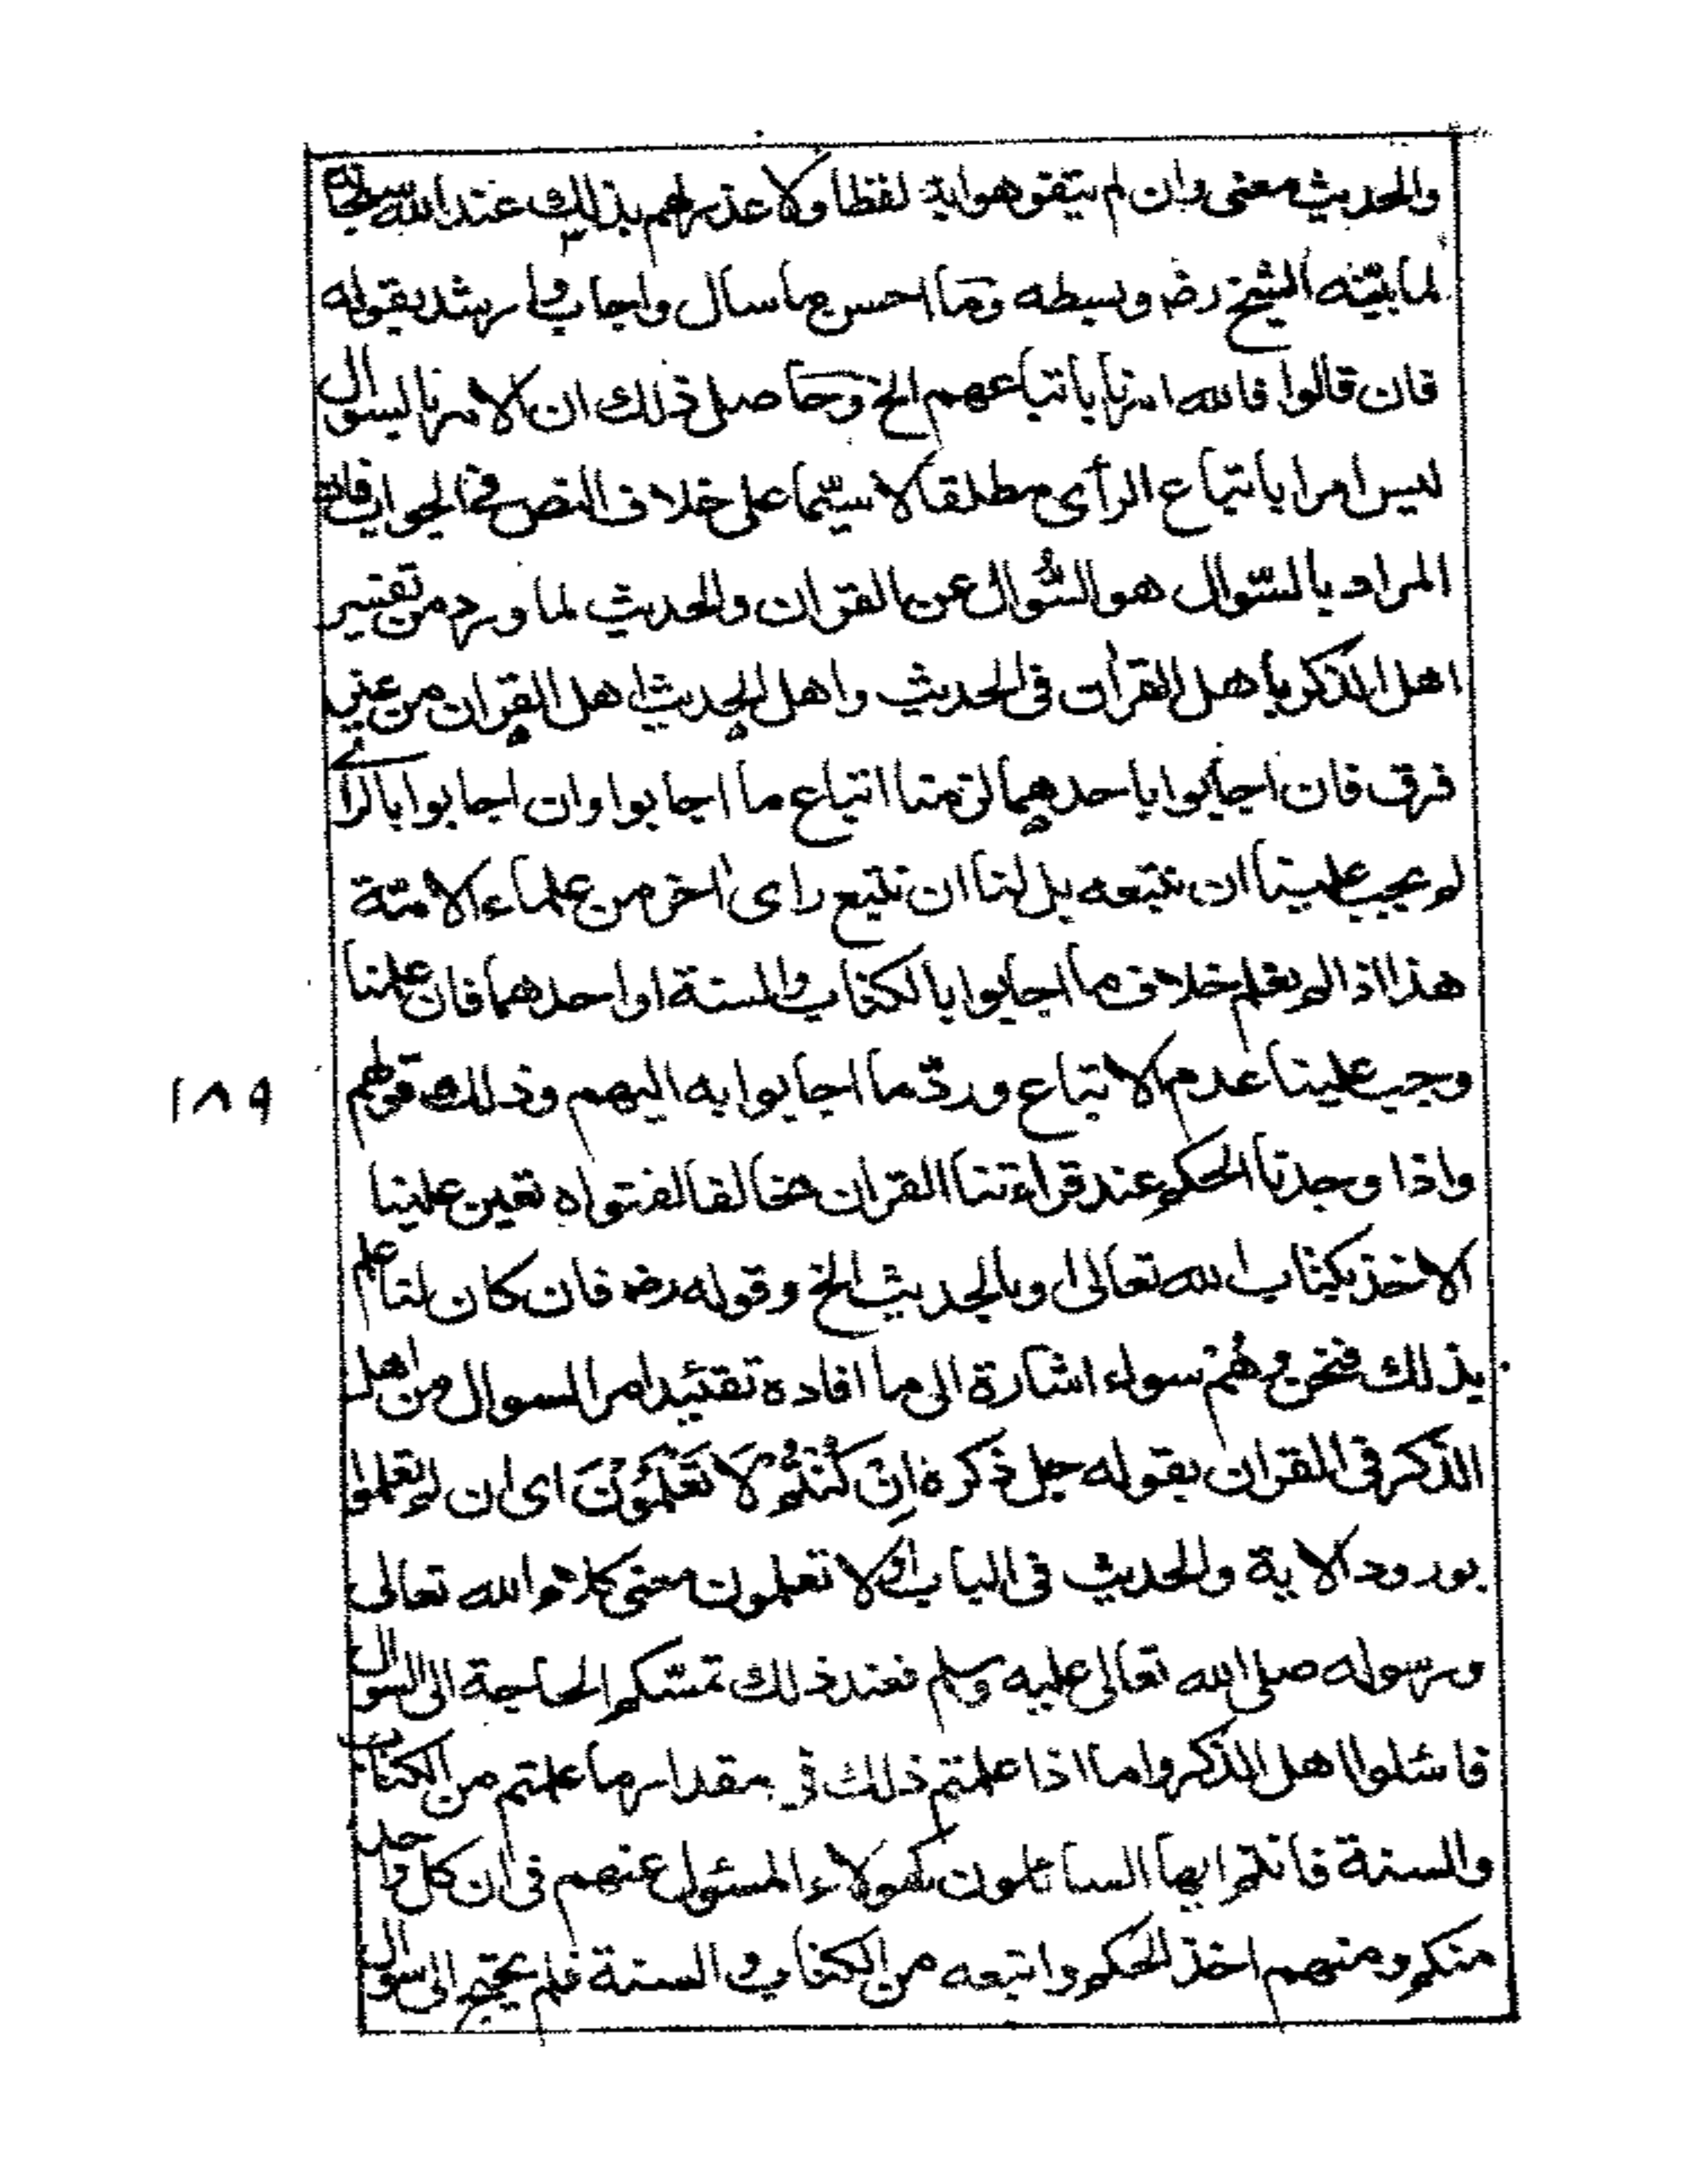 والحديث معنى وان لم يتفوهوا به لفظا ولا عذر لهم بذلك عند الله سبحانه
لما بيّنه الشيخ رضـ وبسطه وما احسن ما سال واجاب وارشد بقوله
فان قالوا فالله امرنا باتباعهم الخ وحاصل ذلك ان الامر بالسوال
ليس امرا باتباع الرأى مطلقا لا سيّما على خلاف النص فى الجواب فان
المراد بالسّوال هو السُّوال عن القران والحديث لما ورد من تفسير
اهل الذكر باهل القرأن فى الحديث واهل الحديث اهل القران من غير
فرق فان اجابوا باحدهما لزمنا اتباع ما اجابوا وان اجابوا بالراے
لم يجب علينا ان نتبعه بل لنا ان نتبع راى اخر من علماء الامّة
هذا اذا لم يعلم خلاف ما اجابوا بالكتاب والسنة او احدهما فان علمنا
وجب علينا عدم الاتباع وردّ ما اجابوا به اليهم وذلك قولهم
واذا وجدنا الحكم عند قراءتنا القران مخالفا لفتواه تعين علينا
الاخذ بكتاب الله تعالى وبالحديث الخ وقوله رضـ فان كان لنا علم
بذلك فنحن وهُمْ سواء اشارة الى ما افاده تقئيد امر السوال من اهل
الذكر فى القران بقوله جل ذكره اِنْ كُنْتُمْ لَا تَعْلَمُوْنَ اى ان لم تعلموا
بورود الاية والحديث فى الباب او لا تعلمون معنى كلام الله تعالى
ورسوله صلى الله تعالى عليه وسلم فعند ذلك تمسّكم الحاجة الى السوال
فاسئلوا اهل الذكر واما اذا علمتم ذلك فى مقدار ما علمتم من الكتاب
والسنة فانتم ايها السائلون كهولاء المسئول عنهم فى ان كل واحد
منكم ومنهم اخذ الحكم واتبعه من الكتاب والسنة فلم يحتج الى سوال
١٨٩